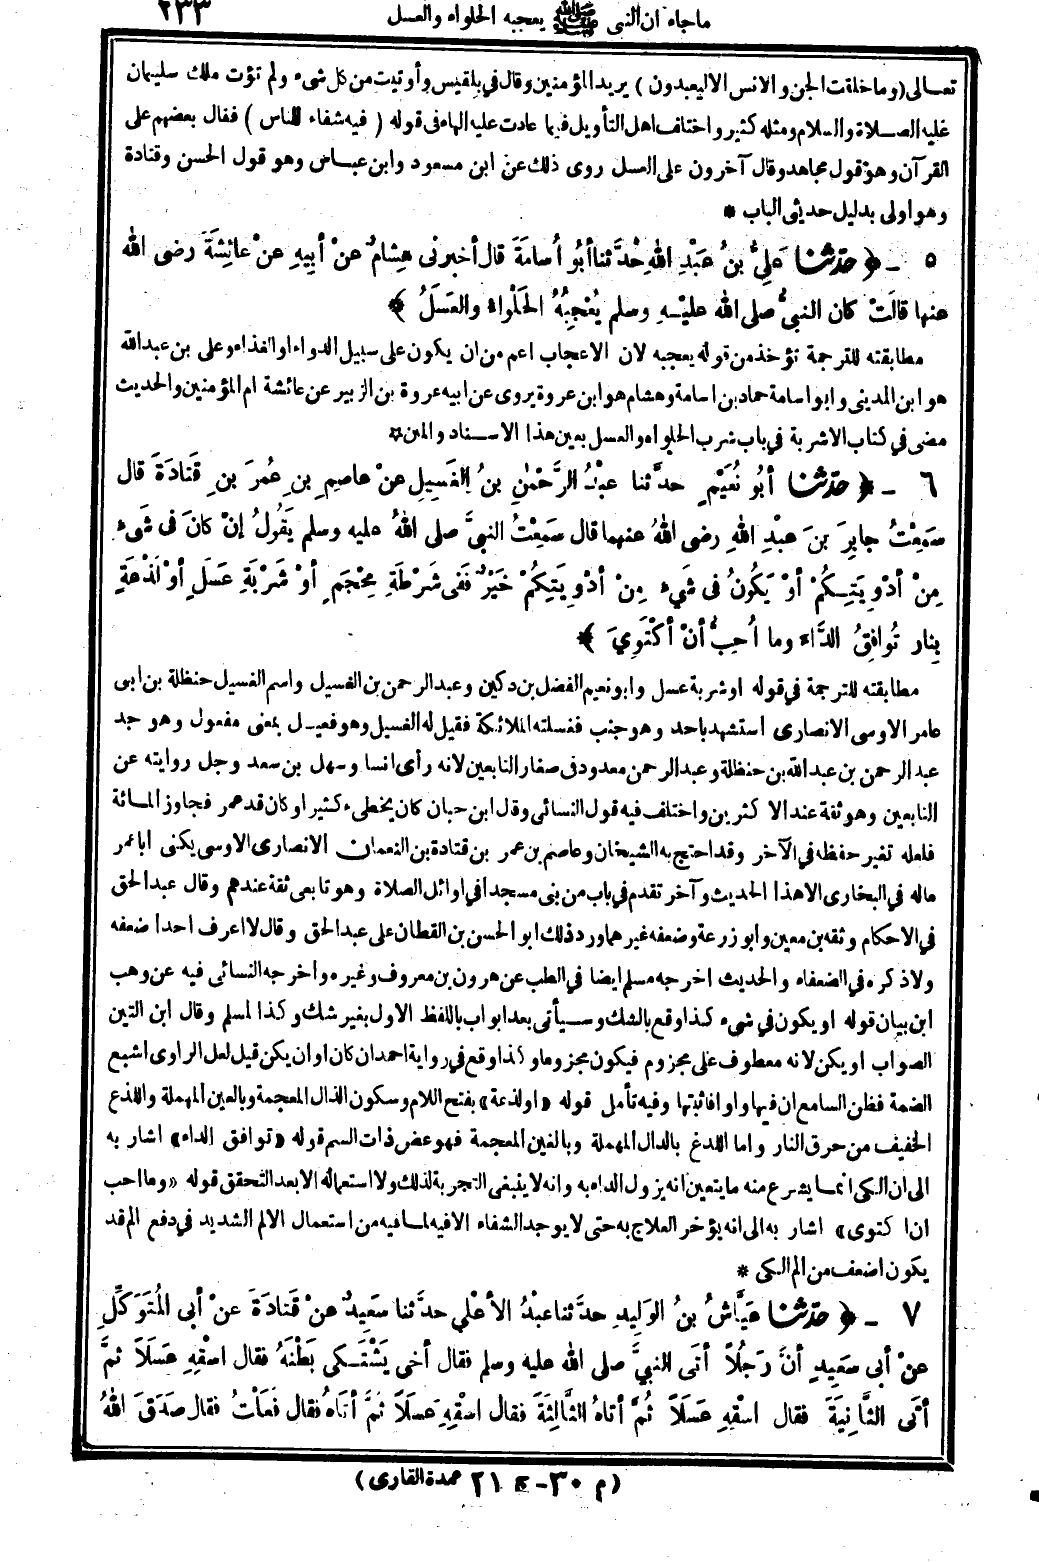 ماجاء ان النبى ﷺ يعجبه الحلواء والعسل ٢٣٣
تعالى (وما خلقت الجن والانس الا ليعبدون) يريد المؤمنين وقال في بلقيس وأوتيت من كل شيء ولم تؤت ملك سليمان
عليه الصلاة والسلام ومثله كثير واختلف اهل التأويل فيما عادت عليه الهاء فى قوله (فيه شفاء للناس) فقال بعضهم على
القرآن وهو قول مجاهد وقال آخرون على العسل روى ذلك عن ابن مسعود وابن عباس وهو قول الحسن وقتادة
وهو اولى بدليل حديثى الباب *
٥ - ﴿ حَدَّثَنَا عَلِىُّ بنُ عَبْدِ اللهِ حَدَّثنا أبُو أُسامَةَ قال أخبرنى هِشامٌ عنْ أبِيهِ عنْ عائِشَةَ رضى الله
عنها قالَتْ كان النبىُّ صلى الله عليْهِ وسلم يُعْجِبُهُ الحَلْواء والعَسَلُ ﴾
مطابقته للترجمة تؤخذ من قوله يعجبه لان الاعجاب اعم من ان يكون على سبيل الدواء او الغذاء وعلى بن عبد الله
هو ابن المدينى وابو اسامة حماد بن اسامة وهشام هو ابن عروة يروى عن ابيه عروة بن الزبير عن عائشة ام المؤمنين والحديث
مضى في كتاب الاشربة في باب شرب الحلواء والعسل بعين هذا الاسناد والمتن *
٦ - ﴿ حدّثنا أبُو نُعَيْمٍ حدَّثنا عبْدُ الرَّحْمٰنِ بنُ الغَسِيلِ عنْ عاصِمِ بنِ عُمَرَ بنِ قَتادَةَ قال
سَمِعْتُ جابِرَ بنَ عبْدِ اللهِ رضى اللهُ عنهما قال سَمِعْتُ النبىَّ صلى اللهُ عليه وسلم يَقُولُ إنْ كانَ فى شَىْءٍ
مِنْ أدْوِيَتِكُمْ أوْ يَكُونُ فى شَىْءٍ مِنْ أدْوِيَتِكُمْ خَيْرٌ فَفى شَرْطَةِ مِحْجَمٍ أوْ شَرْبَةِ عَسَلٍ أوْ لَذْعَةٍ
بِنارٍ تُوافِقُ الدَّاءَ وما أُحِبُّ أنْ أكْتَوِىَ ﴾
مطابقته للترجمة في قوله او شربة عسل وابو نعيم الفضل بن دكين وعبد الرحمن بن الغسيل واسم الغسيل حنظلة بن ابى
عامر الاوسى الانصارى استشهد باحد وهو جنب فغسلته الملائكة فقيل له الغسيل وهو فعيل بمعنى مفعول وهو جد
عبد الرحمن بن عبد الله بن حنظلة وعبد الرحمن معدود فى صغار التابعين لانه رأى انسا وسهل بن سعد وجل روايته عن
التابعين وهو ثقة عند الاكثرين واختلف فيه قول النسائى وقال ابن حبان كان يخطىء كثيرا وكان قد عمر فجاوز المائة
فلعله تغير حفظه في الآخر وقد احتج به الشيخان وعاصم بن عمر بن قتادة بن النعمان الانصارى الاوسى يكنى أبا عمر
ماله في البخارى الا هذا الحديث وآخر تقدم في باب من بنى مسجدا في اوائل الصلاة وهو تابعى ثقة عندهم وقال عبد الحق
في الاحكام وثقه بن معين وابو زرعة وضعفه غيرهما ورد ذلك ابو الحسن بن القطان على عبد الحق وقال لا اعرف احدا ضعفه
ولا ذكره في الضعفاء والحديث اخرجه مسلم ايضا في الطب عن هرون بن معروف وغيره واخرجه النسائى فيه عن وهب
ابن بيان قوله او يكون في شىء كذا وقع بالشك وسيأتى بعد ابواب باللفظ الاول بغير شك وكذا لمسلم وقال ابن التين
الصواب او يكن لانه معطوف على مجزوم فيكون مجزوما وكذا وقع في رواية احمد ان كان او ان يكن قيل لعل الراوى اشبع
الضمة فظن السامع ان فيها واوا فاثبتها وفيه تأمل قوله «اولذعة» بفتح اللام وسكون الذال المعجمة وبالعين المهملة واللذع
الخفيف من حرق النار واما اللدغ بالدال المهملة وبالغين المعجمة فهو عض ذات السم قوله «توافق الداء» اشار به
الى ان الكى انما يشرع منه ما يتعين انه يزول الداء به وانه لا ينبغى التجربة لذلك ولا استعماله الا بعد التحقق قوله «وما احب
ان اكتوى» اشار به الى انه يؤخر العلاج به حتى لا يوجد الشفاء الا فيه لما فيه من استعمال الالم الشديد في دفع الم قد
يكون اضعف من الم الكى *
٧ - ﴿ حدّثنا عَيَّاشُ بنُ الوَلِيدِ حدَّثنا عبْدُ الأعْلى حدَّثنا سَعِيدٌ عنْ قَتادَةَ عنْ أبى المُتَوَكِّلِ
عنْ أبى سَعِيدٍ أنَّ رَجُلاً أتَى النبىَّ صلى الله عليه وسلم فقال أخى يَشْتَكِى بَطْنَهُ فقال اسْقِهِ عَسَلاً ثمَّ
أتَى الثَّانِيَةَ فقال اسْقِهِ عَسَلاً ثُمَّ أتاهُ الثَّالِثَةَ فقال اسْقِهِ عَسَلاً ثمَّ أتاهُ فقال فَعَلْتُ فقال صَدَقَ اللهُ
(م ٣٠ - ج ٢١ عمدة القارى)